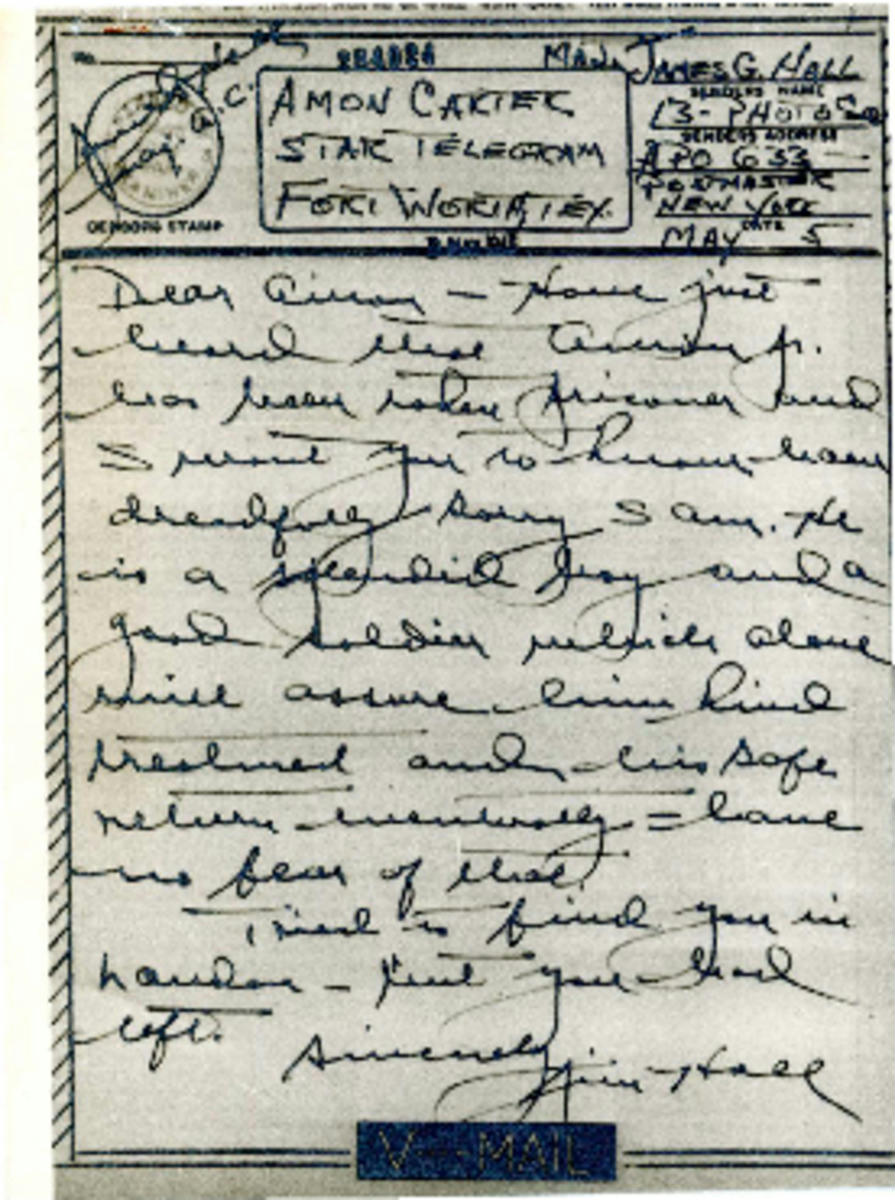 No.
MAJ. JAMES G. HALL
SENDER'S NAME
AMON CARTER
13- PHOTO SQ
SENDER'S ADDRESS
STAR TELEGRAM
APO 633 —
POSTMASTER
FORT WORTH, TEX.
NEW YORK
DATE
MAY 5
CENSOR'S STAMP
Dear Amon — Have just
heard that Amon Jr.
has been taken prisoner and
I want you to know how
dreadfully sorry I am. He
is a splendid boy and a
good soldier which alone
will assure him kind
treatment and his safe
return eventually = have
no fear of that.
Tried to find you in
London — but you had
left.
Sincerely
Jim Hall
V--- MAIL